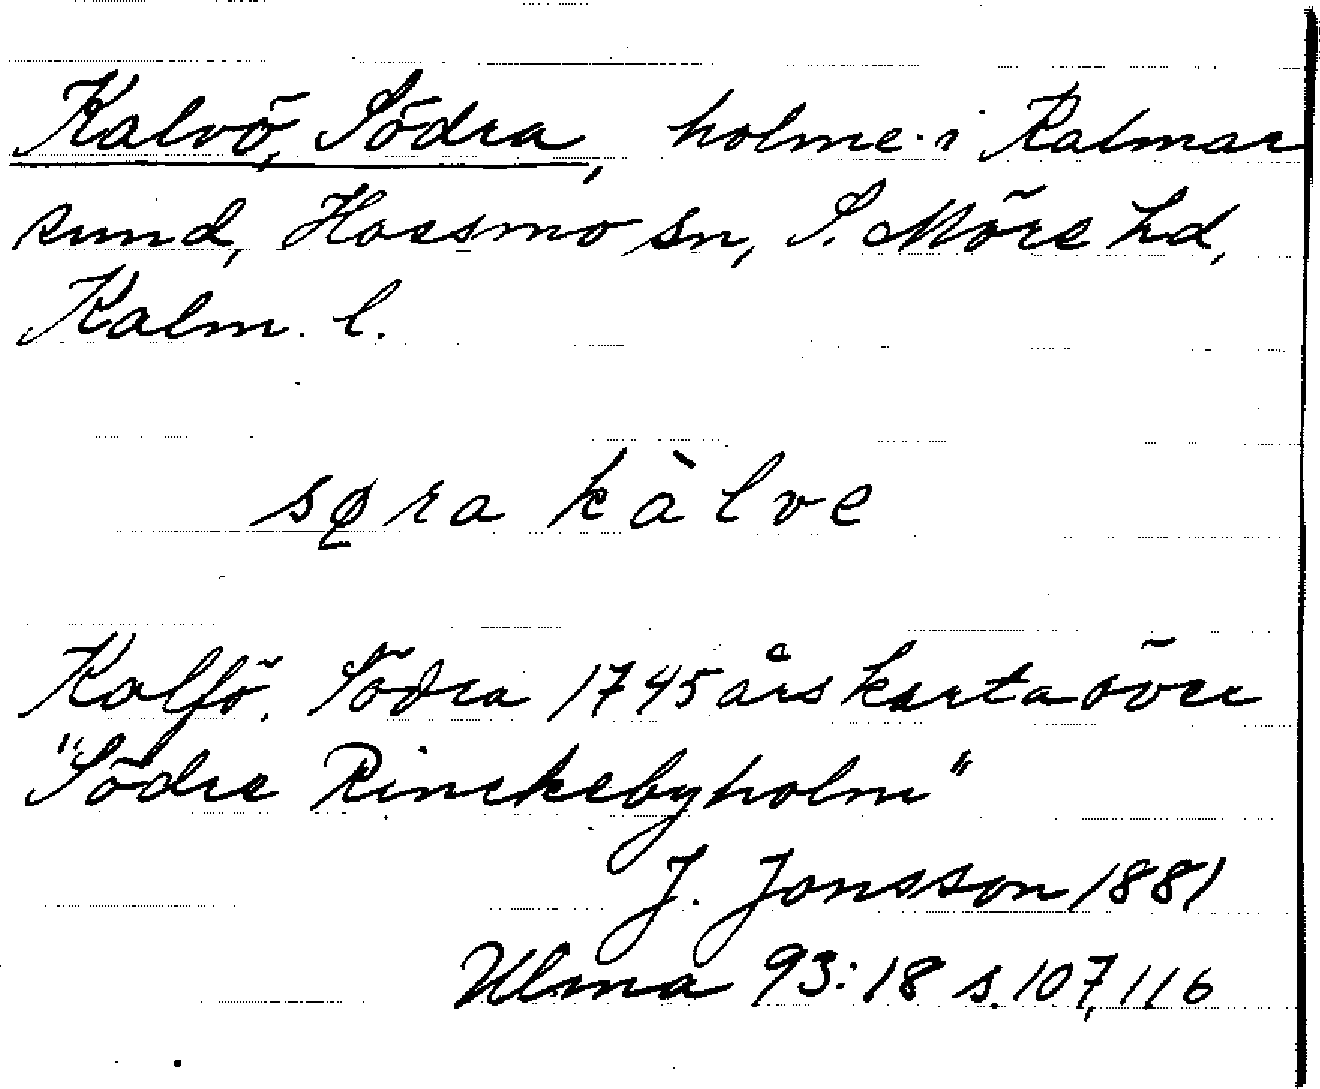 Kalvö, Södra, holme i Kalmar
sund, Hossmo sn, S. Möre hd,
Kalm. l.
sø̨ra kàlve
Kalfö. Södra 1745 års karta över
"Södre Rinckebyholm"
J. Jonsson 1881
Ulma 93:18 s. 107, 116